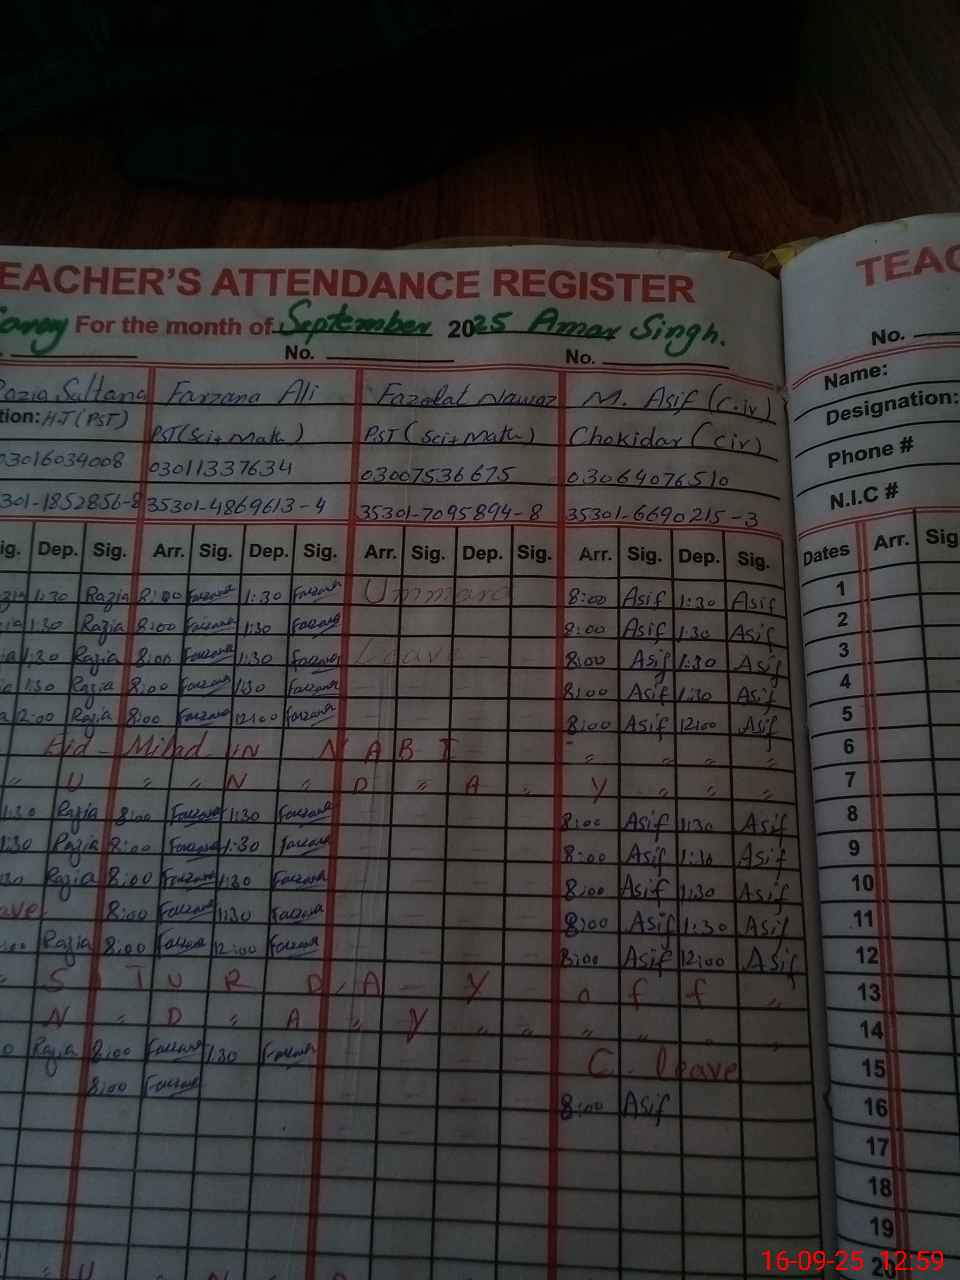 EACHER'S ATTENDANCE REGISTER
For the month of September 2025 Amar Singh.
No. No.
Razia Saltana Farzana Ali Fazalat Nawaz M. Asif (Civ)
tion: HT (PST) PST (Sci+Math) PST (Sci+Math) Chokidar (Civ)
03016034008 03011337634 03007536675 03064076510
301-1852856-8 35301-4869613-4 35301-7095894-8 35301-6690215-3
ig. Dep. Sig. Arr. Sig. Dep. Sig. Arr. Sig. Dep. Sig. Arr. Sig. Dep. Sig.
1:30 Razia 8:00 Farzana 1:30 Farzana Ummara 8:00 Asif 1:30 Asif
1:30 Razia 8:00 Farzana 1:30 Farzana 8:00 Asif 1:30 Asif
1:30 Razia 8:00 Farzana 1:30 Farzana Leave 8:00 Asif 1:30 Asif
1:30 Razia 8:00 Farzana 1:30 Farzana 8:00 Asif 1:30 Asif
12:00 Razia 8:00 Farzana 12:00 Farzana 8:00 Asif 12:00 Asif
Eid - Milad IN N A B I
U " " N " D " A " Y " " "
1:30 Razia 8:00 Farzana 1:30 Farzana 8:00 Asif 1:30 Asif
1:30 Razia 8:00 Farzana 1:30 Farzana 8:00 Asif 1:30 Asif
30 Razia 8:00 Farzana 1:30 Farzana 8:00 Asif 1:30 Asif
ave 8:00 Farzana 1:30 Farzana 8:00 Asif 1:30 Asif
Razia 8:00 Farzana 12:00 Farzana 8:00 Asif 12:00 Asif
S T U R D A - Y o f f "
N " D " A " Y " " " "
0 Razia 8:00 Farzana 1:30 Farzana C. leave
8:00 Farzana 8:00 Asif
U N D
TEAC
No.
Name:
Designation:
Phone #
N.I.C #
Dates Arr. Sig
1
2
3
4
5
6
7
8
9
10
11
12
13
14
15
16
17
18
19
20
16-09-25 12:59